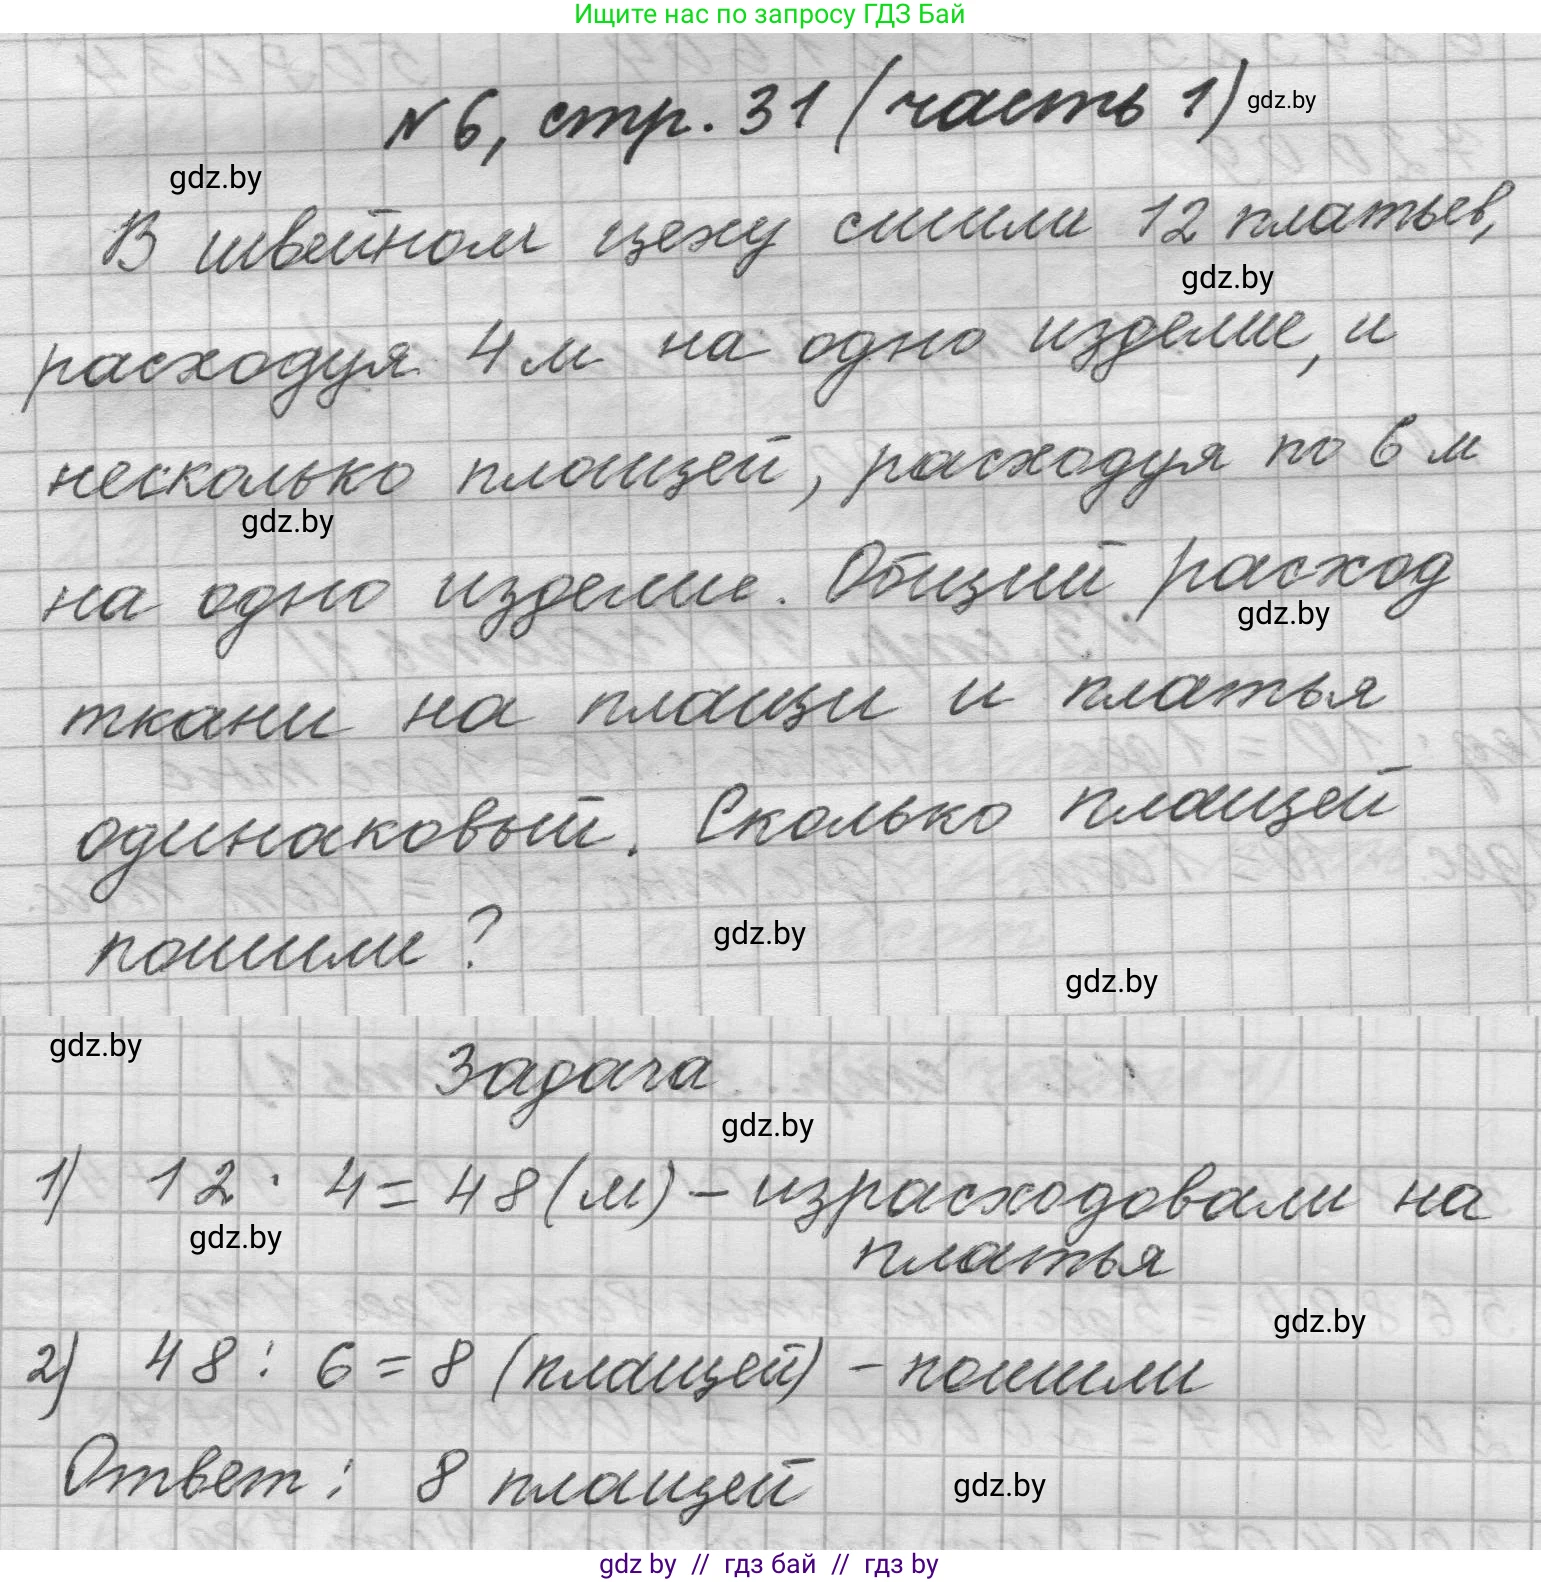 Ищите нас по запросу ГДЗ Бай
№6, стр. 31 (часть 1) gdz.by
gdz.by
В швейном цеху сшили 12 платьев,
gdz.by
расходуя 4 м на одно изделие, и
несколько плащей, расходуя по 6 м
gdz.by
на одно изделие. Общий расход
gdz.by
ткани на плащи и платья
одинаковый. Сколько плащей
пошили?
gdz.by
gdz.by
gdz.by
Задача
gdz.by
1) 12 · 4 = 48 (м) – израсходовали на
gdz.by
платья
gdz.by
2) 48 : 6 = 8 (плащей) – пошили
Ответ: 8 плащей
gdz.by
gdz by // гдз бай // гдз by